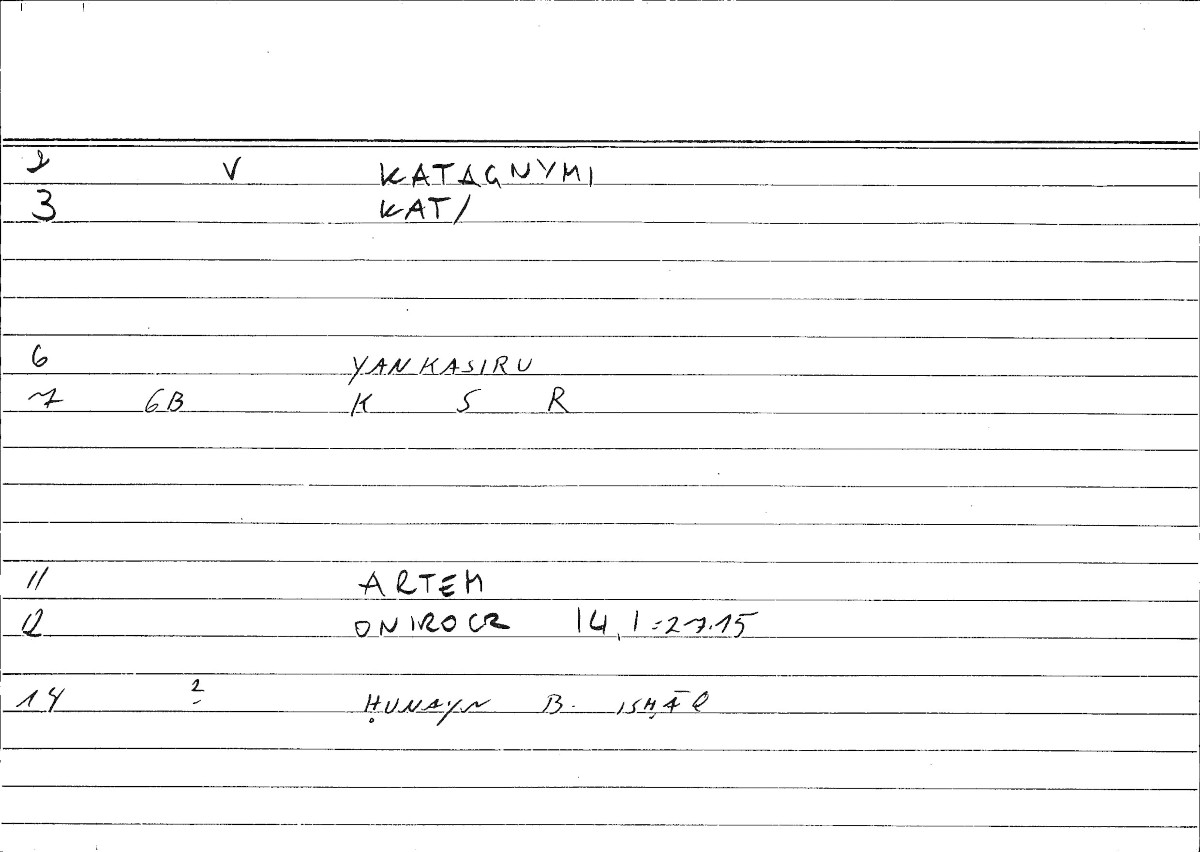 2 V KATAGNYMI
3 KAT/
6 YANKASIRU
7 6B K S R
11 ARTEM
12 ONIROCR 14,1=27.15
14 2 ḤUNAYN B. ISḤĀQ